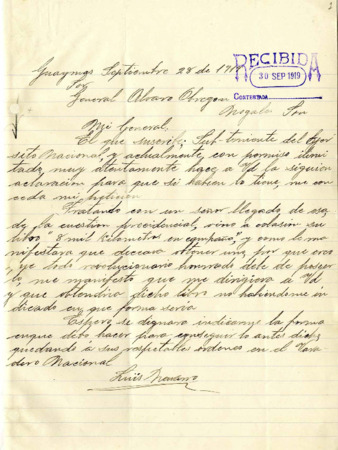 Guaymas Septiembre 28 de 1919
RECIBIDA
30 SEP 1919
CONTESTADA
Sor
General Alvaro Obregon
Nogales Son
Mi General,
El que suscribe Sub-teniente del Ejer
sito Nacional, y actualmente, con permiso ilimi
tado, muy atentamente hace a Vd la siguien
aclaracion para que si ha bien lo tiene, me con
ceda mi peticion
Tratando con un señor llegado de esa,
de la cuestion precidencial, vino a colasion su
libro "8 mil Kilometros en campaña," y como le ma
nifestara que deceara obtener uno, por que creo,
que todo revolucionario honrado debe de poseer
lo, me manifesto que me dirigiera á Vd
y que obtendria dicho libro no habiendome in
dicado en que forma seria
Espero se dignara indicarme la forma
en que debo hacer para conseguir lo antes dicho,
quedando a sus respetables ordenes en el Vara
dero Nacional
Luis Navarro